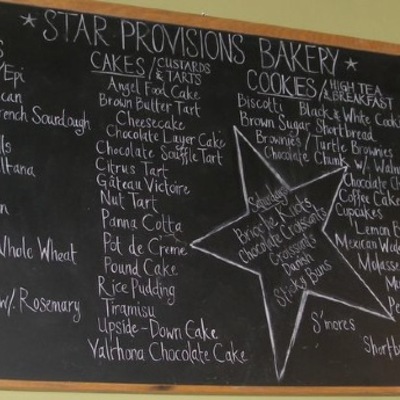 ★ STAR PROVISIONS BAKERY ★
s
Epi
can
rench Sourdough
lls
ltana
n
Whole Wheat
w/. Rosemary
CAKES / CUSTARDS & TARTS
Angel Food Cake
Brown Butter Tart
Cheesecake
Chocolate Layer Cake
Chocolate Souffle Tart
Citrus Tart
Gâteau Victoire
Nut Tart
Panna Cotta
Pot de Creme
Pound Cake
Rice Pudding
Tiramisu
Upside-Down Cake
Valrhona Chocolate Cake
COOKIES / HIGH TEA & BREAKFAST
Biscotti Black & White Cooki
Brown Sugar Shortbread
Brownies / Turtle Brownies
Chocolate Chunk w/ Waln
Chocolate Ch
Coffee Cake
Cupcakes
Lemon B
Mexican Wed
Molasse
Mu
Pe
S'mores
Shortb
Saturdays!
Brioche Knots
Chocolate Croissants
Croissants
Danish
Sticky Buns